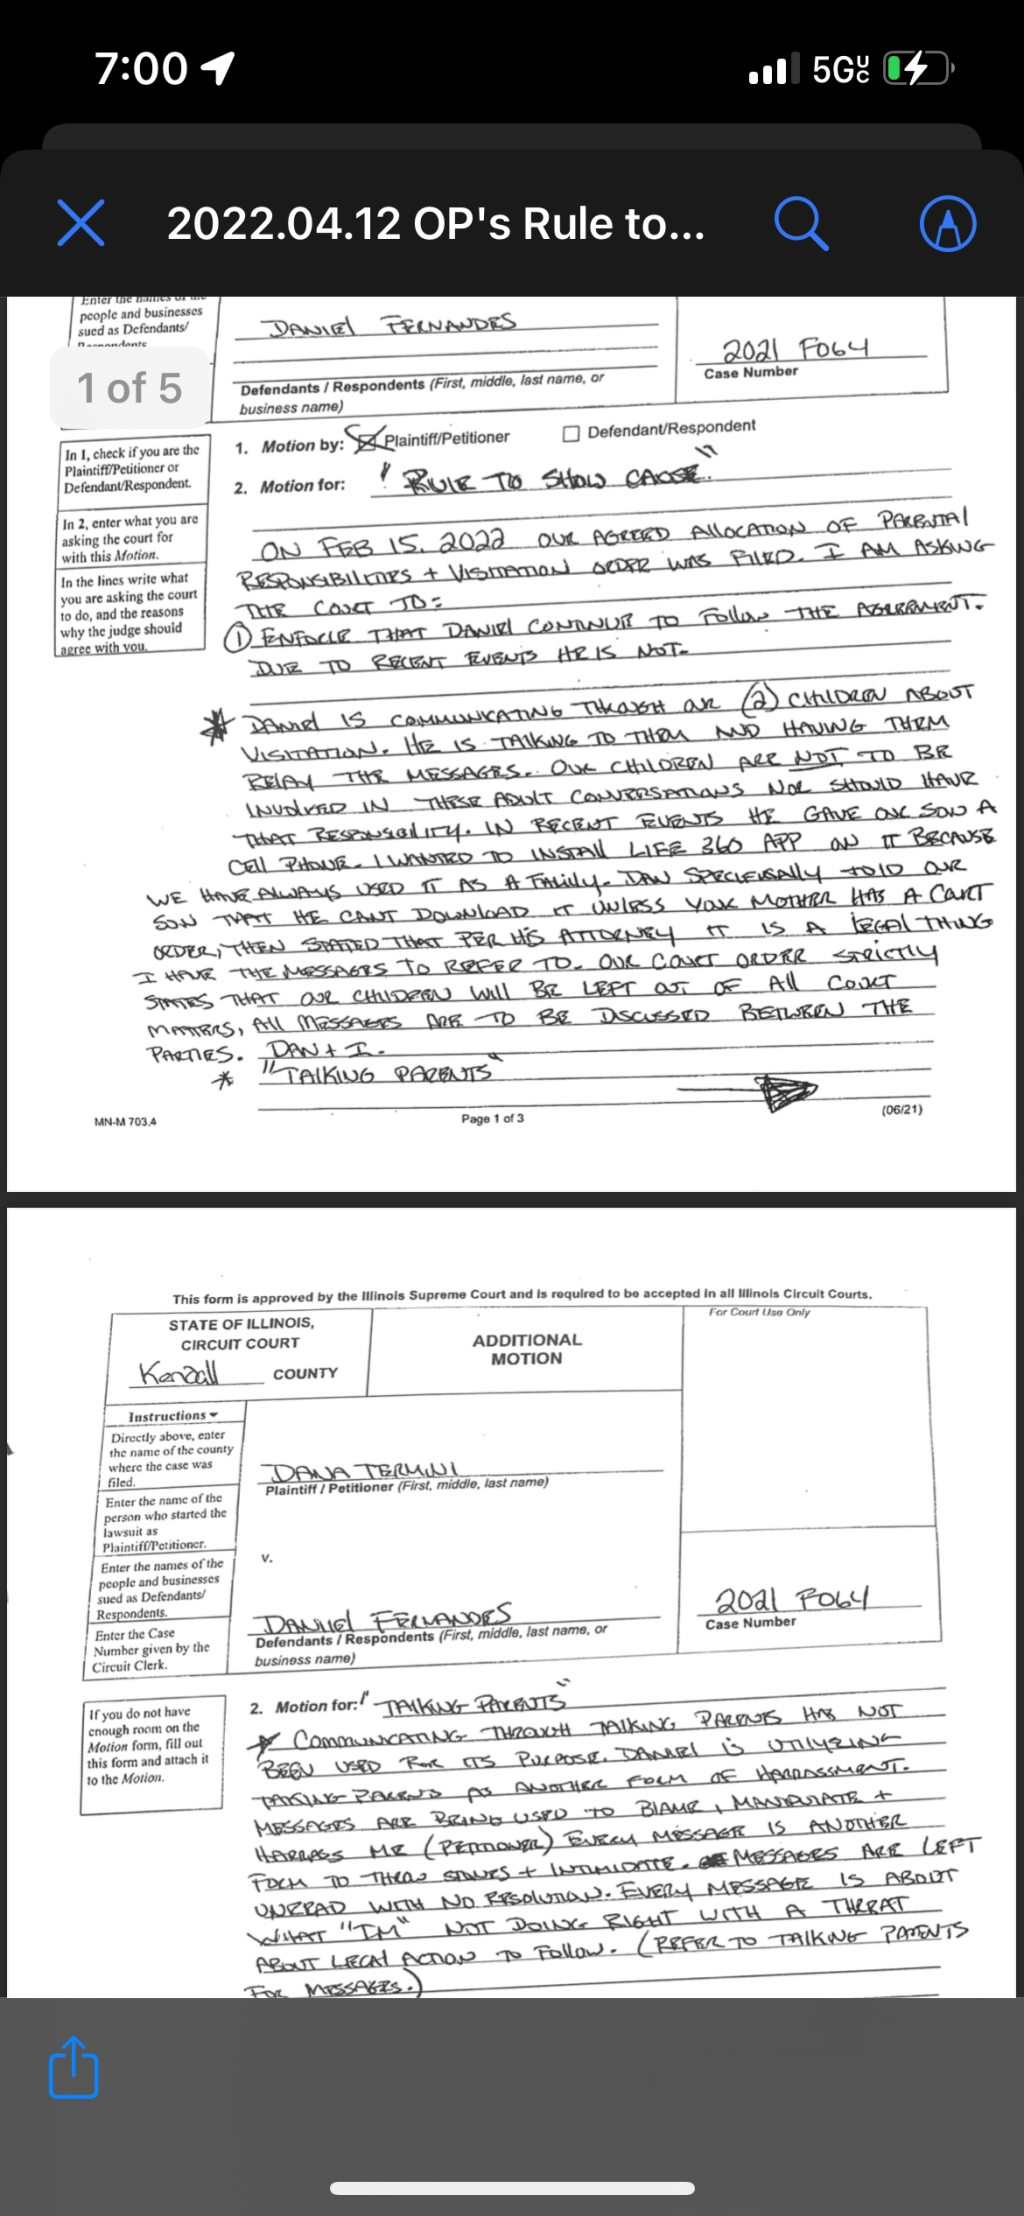 7:00
5G UC
2022.04.12 OP's Rule to...
Enter the names of the
people and businesses
sued as Defendants/
Respondents
1 of 5
DANIEl FERNANDES
Defendants / Respondents (First, middle, last name, or
business name)
2021 F064
Case Number
In 1, check if you are the
Plaintiff/Petitioner or
Defendant/Respondent.
1. Motion by: Plaintiff/Petitioner
Defendant/Respondent
2. Motion for: "RULE TO SHOW CAUSE."
In 2, enter what you are
asking the court for
with this Motion.
In the lines write what
you are asking the court
to do, and the reasons
why the judge should
agree with you.
ON FEB 15, 2022 OUR AGREED AllOCATION OF PARENTAl
RESPONSIBILITIES + VISITATION ORDER WAS FILED. I AM ASKING
THE COURT TO:
① ENFORCE THAT DANIEl CONTINUE TO Follow THE AGREEMENT.
DUE TO RECENT EVENTS HE IS NOT.
* DANIEl IS COMMUNICATING THROUGH OUR (2) CHILDREN ABOUT
VISITATION. HE IS TALKING TO THEM AND HAVING THEM
RELAY THE MESSAGES. OUR CHILDREN ARE NOT TO BE
INVOLVED IN THESE ADULT CONVERSATIONS NOR SHOULD HAVE
THAT RESPONSIBILITY. IN RECENT EVENTS HE GAVE OUR SON A
CEll PHONE. I WANTED TO INSTAll LIFE 360 APP ON IT BECAUSE
WE HAVE AlWAYS USED IT AS A FAMILY. DAN SPECIFICALLY TOlD OUR
SON THAT HE CANT DOWNLOAD IT UNLESS YOUR MOTHER HAS A COURT
ORDER, THEN STATED THAT PER HIS ATTORNEY IT IS A LEGAl THING
I HAVE THE MESSAGES TO REFER TO. OUR COURT ORDER STRICTLY
STATES THAT OUR CHILDREN WILL BE LEFT OUT OF All COURT
MATTERS, All MESSAGES ARE TO BE DISCUSSED BETWEEN THE
PARTIES. DAN + I.
* "TALKING PARENTS"
MN-M 703.4
Page 1 of 3
(06/21)
This form is approved by the Illinois Supreme Court and is required to be accepted in all Illinois Circuit Courts.
STATE OF ILLINOIS,
CIRCUIT COURT
Kendall COUNTY
ADDITIONAL
MOTION
For Court Use Only
Instructions
Directly above, enter
the name of the county
where the case was
filed.
Enter the name of the
person who started the
lawsuit as
Plaintiff/Petitioner.
Enter the names of the
people and businesses
sued as Defendants/
Respondents.
Enter the Case
Number given by the
Circuit Clerk.
DANA TERMINI
Plaintiff / Petitioner (First, middle, last name)
v.
DANIEl FERNANDES
Defendants / Respondents (First, middle, last name, or
business name)
2021 F064
Case Number
If you do not have
enough room on the
Motion form, fill out
this form and attach it
to the Motion.
2. Motion for: "TALKING PARENTS"
* COMMUNICATING THROUGH TALKING PARENTS HAS NOT
BEEN USED FOR ITS PURPOSE. DANIEl IS UTILYZING
TALKING PARENTS AS ANOTHER FORM OF HARRASSMENT.
MESSAGES ARE BEING USED TO BLAME, MANIPULATE +
HARRASS ME (PETITIONER) EVERY MESSAGE IS ANOTHER
FORM TO THROW STONES + INTIMIDATE. MESSAGES ARE LEFT
UNREAD WITH NO RESOLUTION. EVERY MESSAGE IS ABOUT
WHAT "IM" NOT DOING RIGHT WITH A THREAT
ABOUT LEGAl ACTION TO Follow. (REFER TO TALKING PARENTS
FOR MESSAGES.)